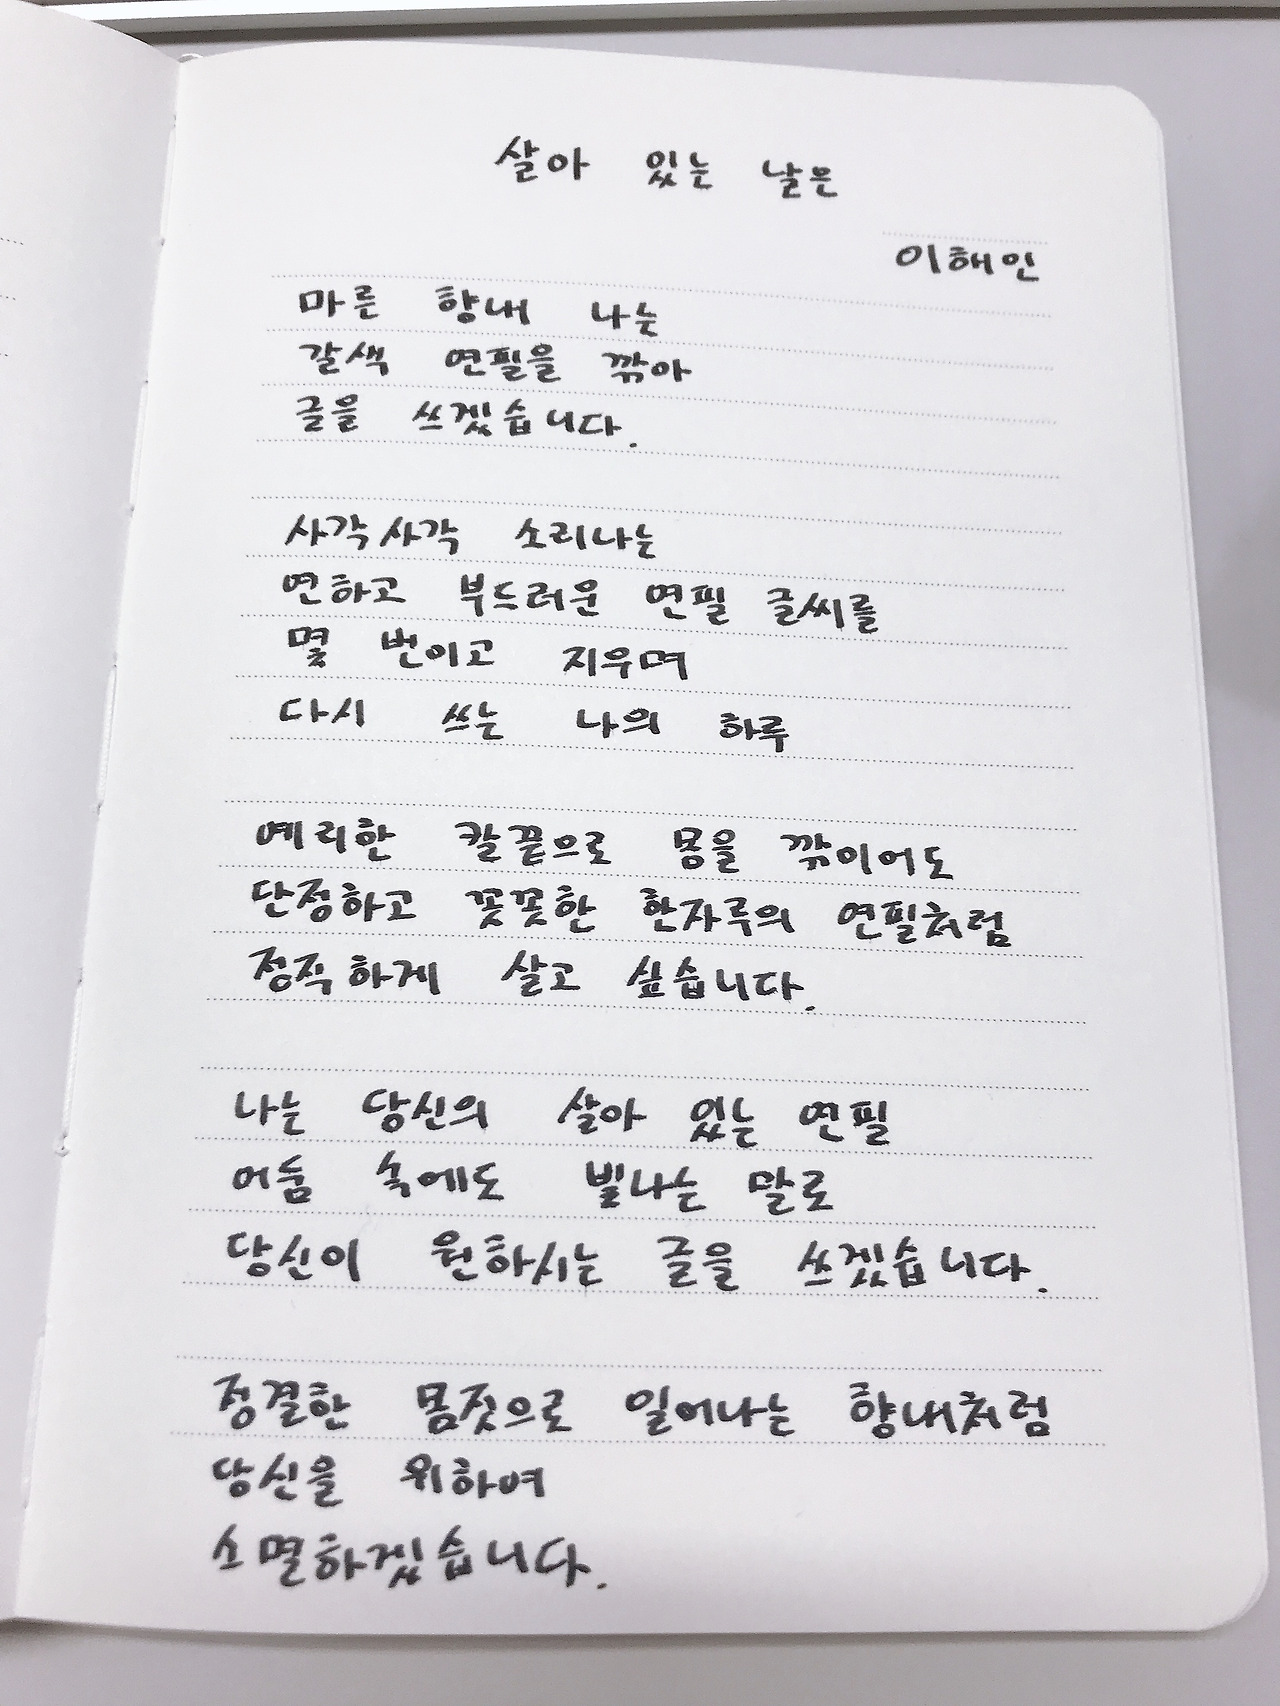 살아 있는 날은
이해인
마른 향내 나는
갈색 연필을 깎아
글을 쓰겠습니다.
사각사각 소리나는
연하고 부드러운 연필 글씨를
몇 번이고 지우며
다시 쓰는 나의 하루
예리한 칼끝으로 몸을 깎이어도
단정하고 꼿꼿한 한자루의 연필처럼
정직하게 살고 싶습니다.
나는 당신의 살아 있는 연필
어둠 속에도 빛나는 말로
당신이 원하시는 글을 쓰겠습니다.
정결한 몸짓으로 일어나는 향내처럼
당신을 위하여
소멸하겠습니다.